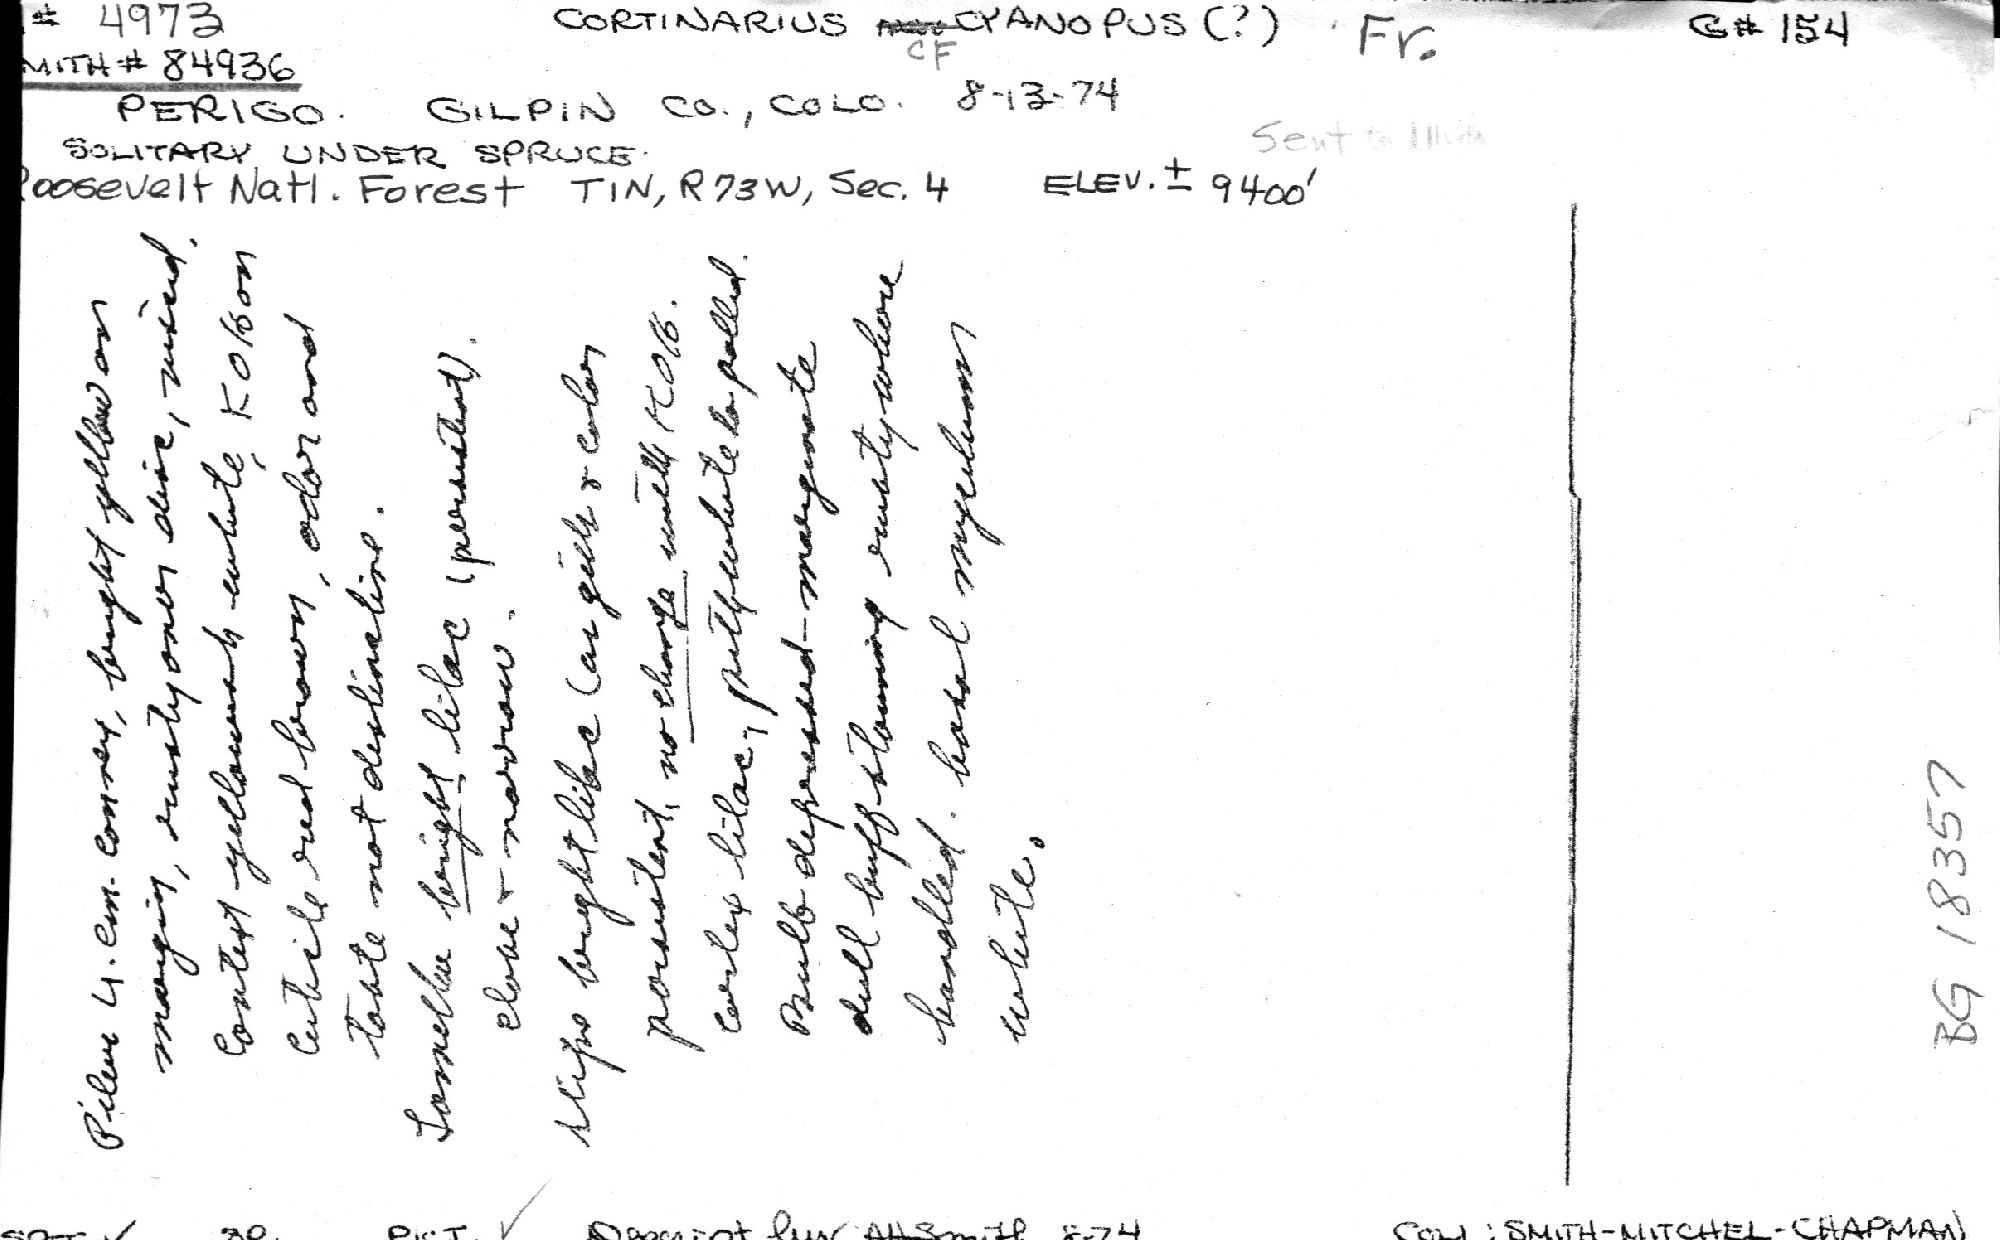 # 4973 CORTINARIUS CYANOPUS (?) Fr. G# 154
CF
MITH # 84936
PERIGO. GILPIN CO., COLO. 8-13-74
SOLITARY UNDER SPRUCE.
Sent to
Roosevelt Natl. Forest T1N, R73W, Sec. 4 ELEV. ± 9400'
Pileus 4. cm. convex, bright yellow on
margin, rusty over disc, viscid.
Context yellowish white, KOH on
cuticle red brown, odor and
taste not distinctive.
Lamellae bright lilac (persistent).
close & narrow.
Stipe bright lilac (as gills & color
persistent, no change with KOH.
Cortex lilac, pith white to pallid.
Bulb depressed-marginate
dull buff staining rusty where
handled. basal mycelium
white.
BG 18357
PICT. ✓ Descript by AHSmith 8-74 COLL: SMITH-MITCHEL-CHAPMAN